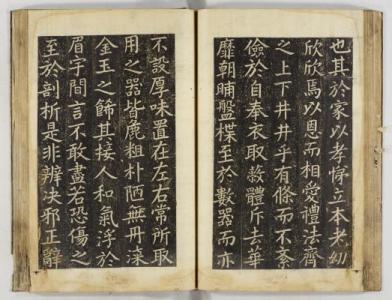 也其於家以孝悌立本老幼
欣欣焉以恩而相愛禮法齊
之上下井井乎有條而不紊
儉於自奉衣取蔽體斥去華
靡朝晡盤楪至於數器而亦
不設厚味置在左右常所取
用之器皆麁粗朴陋無丹漆
金玉之餙其接人和氣浮於
眉宇間言不敢盡若恐傷之
至於剖析是非辨决邪正辭